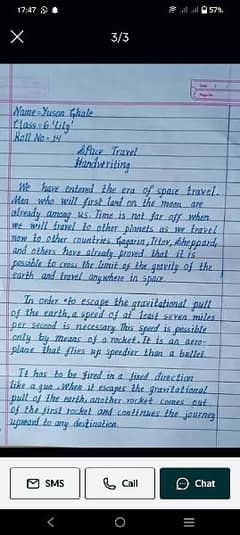 17:47
57%
3/3
Name = Yuson Ghale
Class = 6 'Lily'
Roll No = 14
Space Travel
Handwriting
We have entered the era of space travel.
Men who will first land on the moon are
already among us. Time is not far off when
we will travel to other planets as we travel
now to other countries. Gagarin, Titov, Sheppard,
and others have already proved that it is
possible to cross the limit of the gravity of the
earth and travel anywhere in space.
In order to escape the gravitational pull
of the earth, a speed of at least seven miles
per second is necessary. This speed is possible
only by means of a rocket. It is an aero-
plane that flies up speedier than a bullet.
It has to be fired in a fixed direction
like a gun. When it escapes the gravitational
pull of the earth, another rocket comes out
of the first rocket and continues the journey
upward to any destination.
SMS
Call
Chat